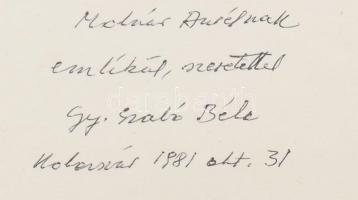 Molnár Aurélnak
emlékül, szeretettel
Gy. Szabó Béla
Kolozsvár 1981 okt. 31